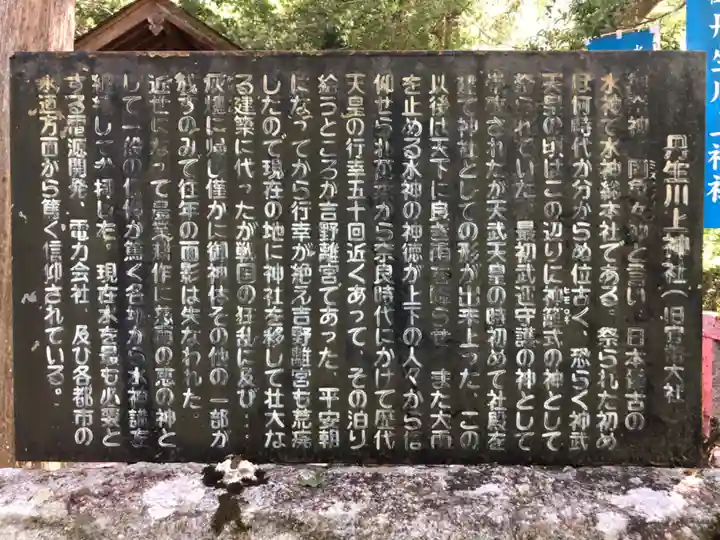 丹生川上神社(旧官幣大社
御祭神 罔象女神と言い、日本最古の
水神で水神総本社である。祭られた初め
は何時代か分からぬ位古く、恐らく神武
天皇の頃はこの辺りに神籬式の神として
給られていた。最初武運守護の神として
されたが天武天皇の時初めて社殿を
建て神社としての形が出来上った。この
以後は天下に良き雨を降らせ、また大雨
を止める水神の神徳が上下の人々から信
仰せられ から奈良時代にかけて歴代
天皇の行幸五十回近くあって、その泊り
給うところが吉野離宮であった。平安朝
になってから行幸が絶え吉野離宮も荒廃
したので現在の地に神社を移して壮大な
る建築に代ったが戦国の狂乱に及び・・
灰燼に帰し僅かに御神体その他の一部が
残すのみで往年の面影は失なわれた。
近世になって農業耕作に 雨の恵の神と
して一般の信仰が篤く各地から水神講を
した。現在水を最も必要と
する電源開発、電力会社、及び各都市の
水道方面から篤く信仰されている。